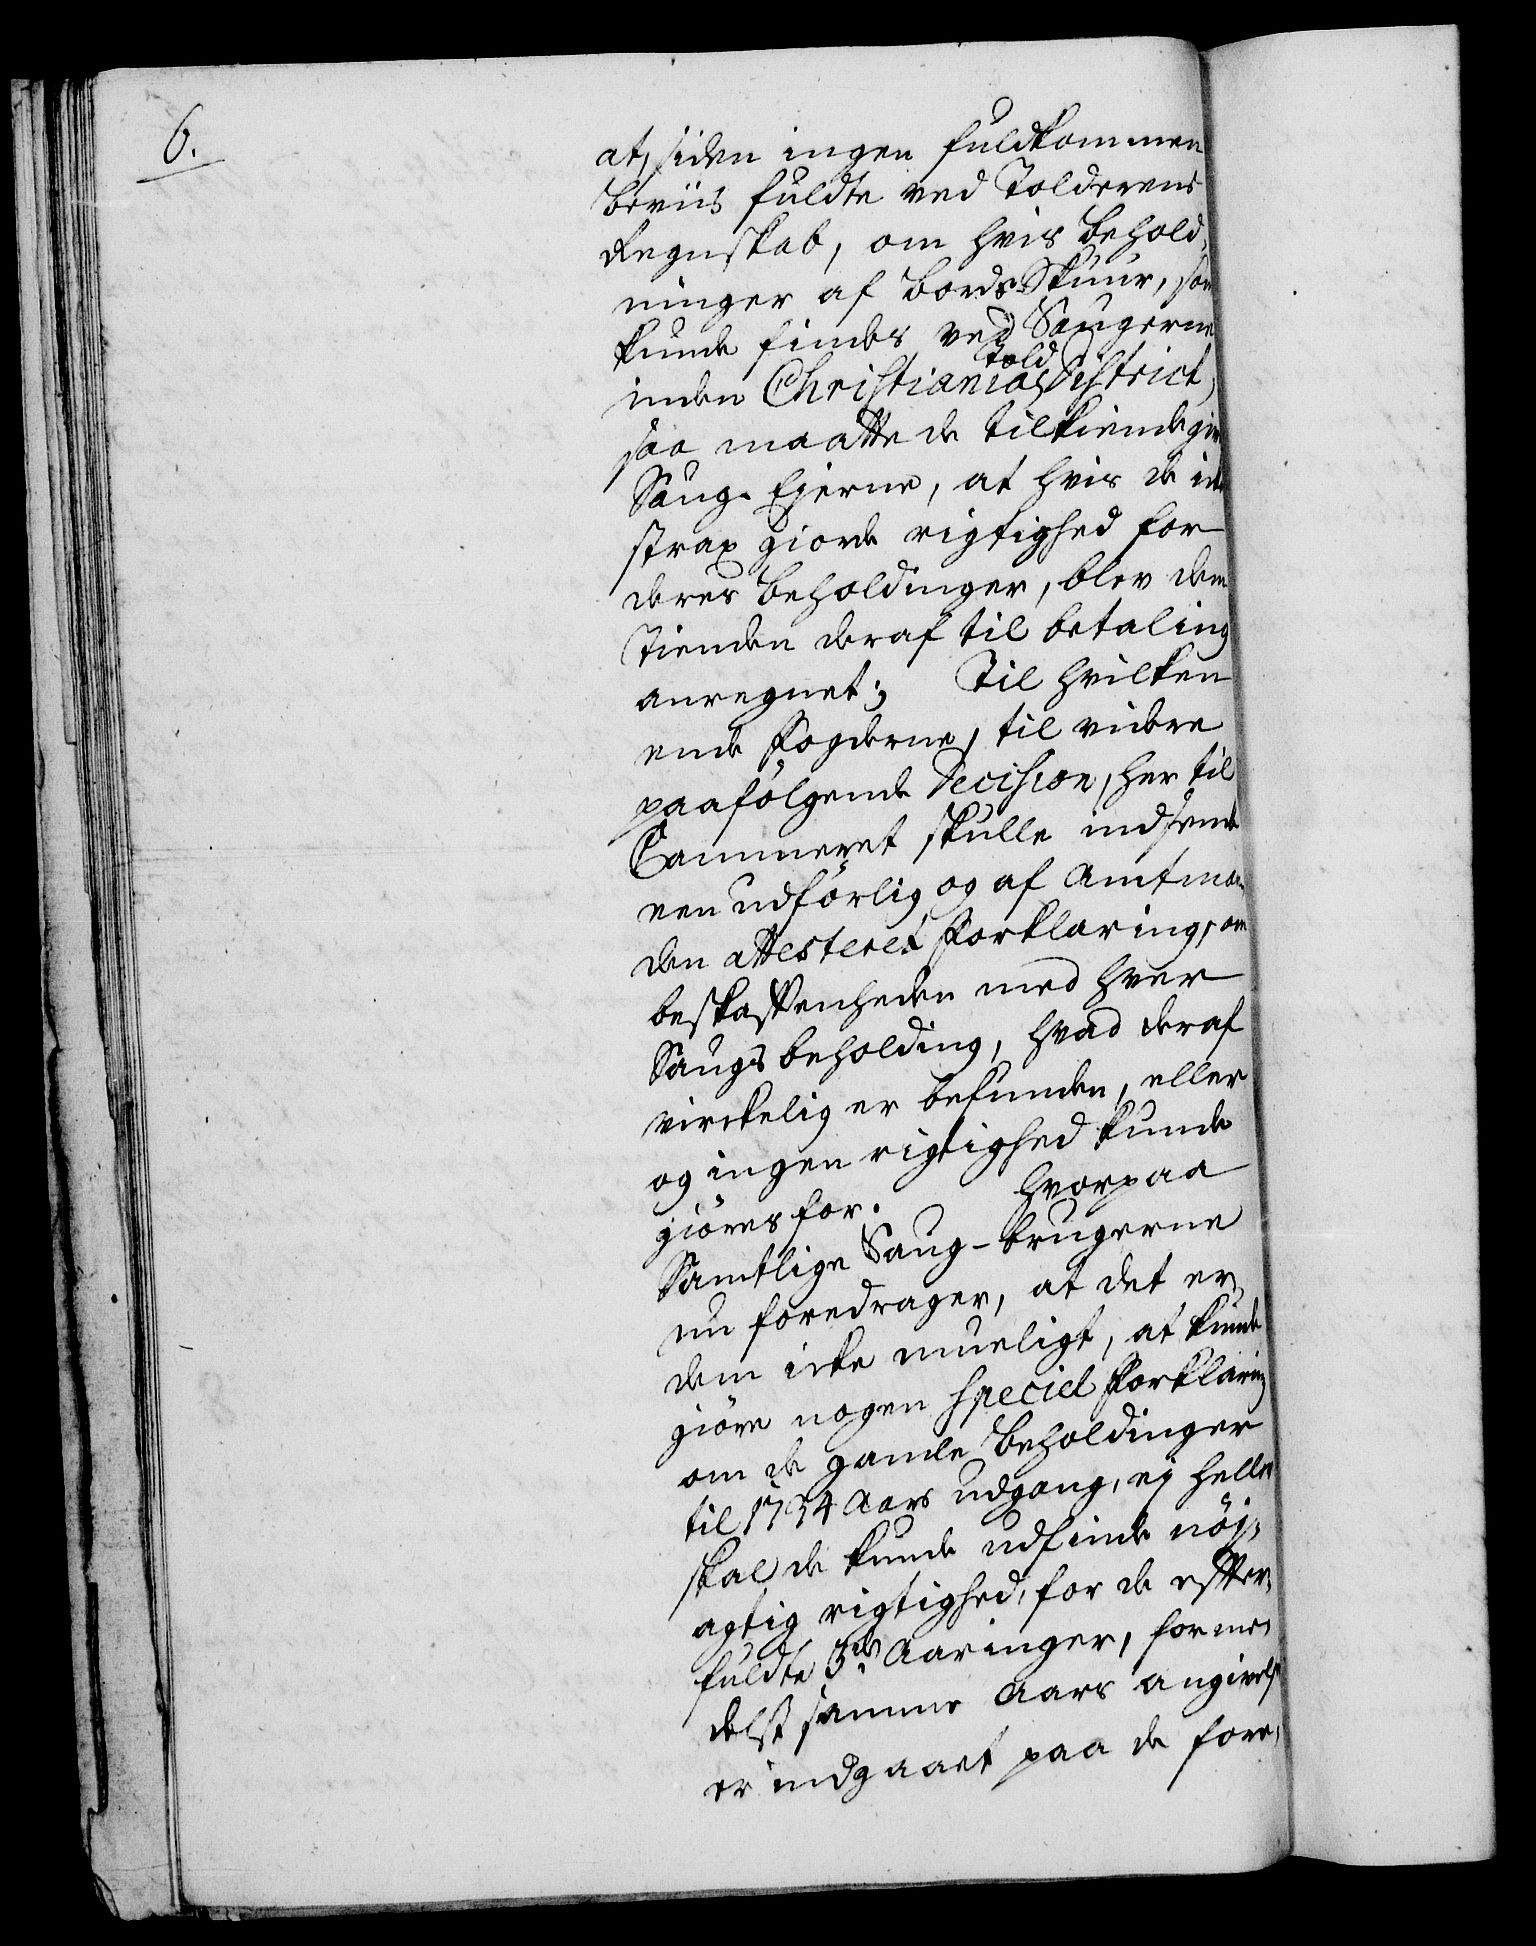 6.
at, siden ingen fuldkommen
beviis fuldte ved Tolderens
Regnskab, om hvis behold,
ninger af bords Skuur, som
kunde findes ved Saugerne
told
inden Christianias District,
saa maatte de tilkiendegive
Saug-Ejerne, at hvis de icke
strax giorde rigtighed for
deres beholdinger, blev dem
Tienden deraf til betaling
anregnet; Til hvilken
ende Fogderne, til videre
paafølgende Decision, her til
Cammeret skulle indsende
een udførlig og af Amtman-
den attesteret Forklaring, om
beskaffenheden med hver
Saugs beholding, hvad deraf
virckelig er befunden, eller
og ingen rigtighed kunde
giøres for. Hvorpaa
Samtlige Saug-brugerne
nu foredrager, at det er
dem icke mueligt, at kunde
giøre nogen Speciel Forklaring
om de gamle beholdinger
til 1734 Aars udgang, ej heller
skal de kunde udfinde nøj,
agtig rigtighed, for de effter,
fuldte 3de Aaringer, forme,
delst samme Aars angivelse
er indgaaet paa de fore,